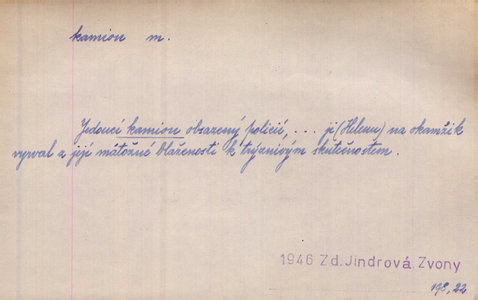 kamion m.
Jedoucí kamion obsazený policií, ... ji (Helenu) na okamžik
vyrval z její mátožné blaženosti k trýznivým skutečnostem.
1946 Zd. Jindrová. Zvony
198, 22